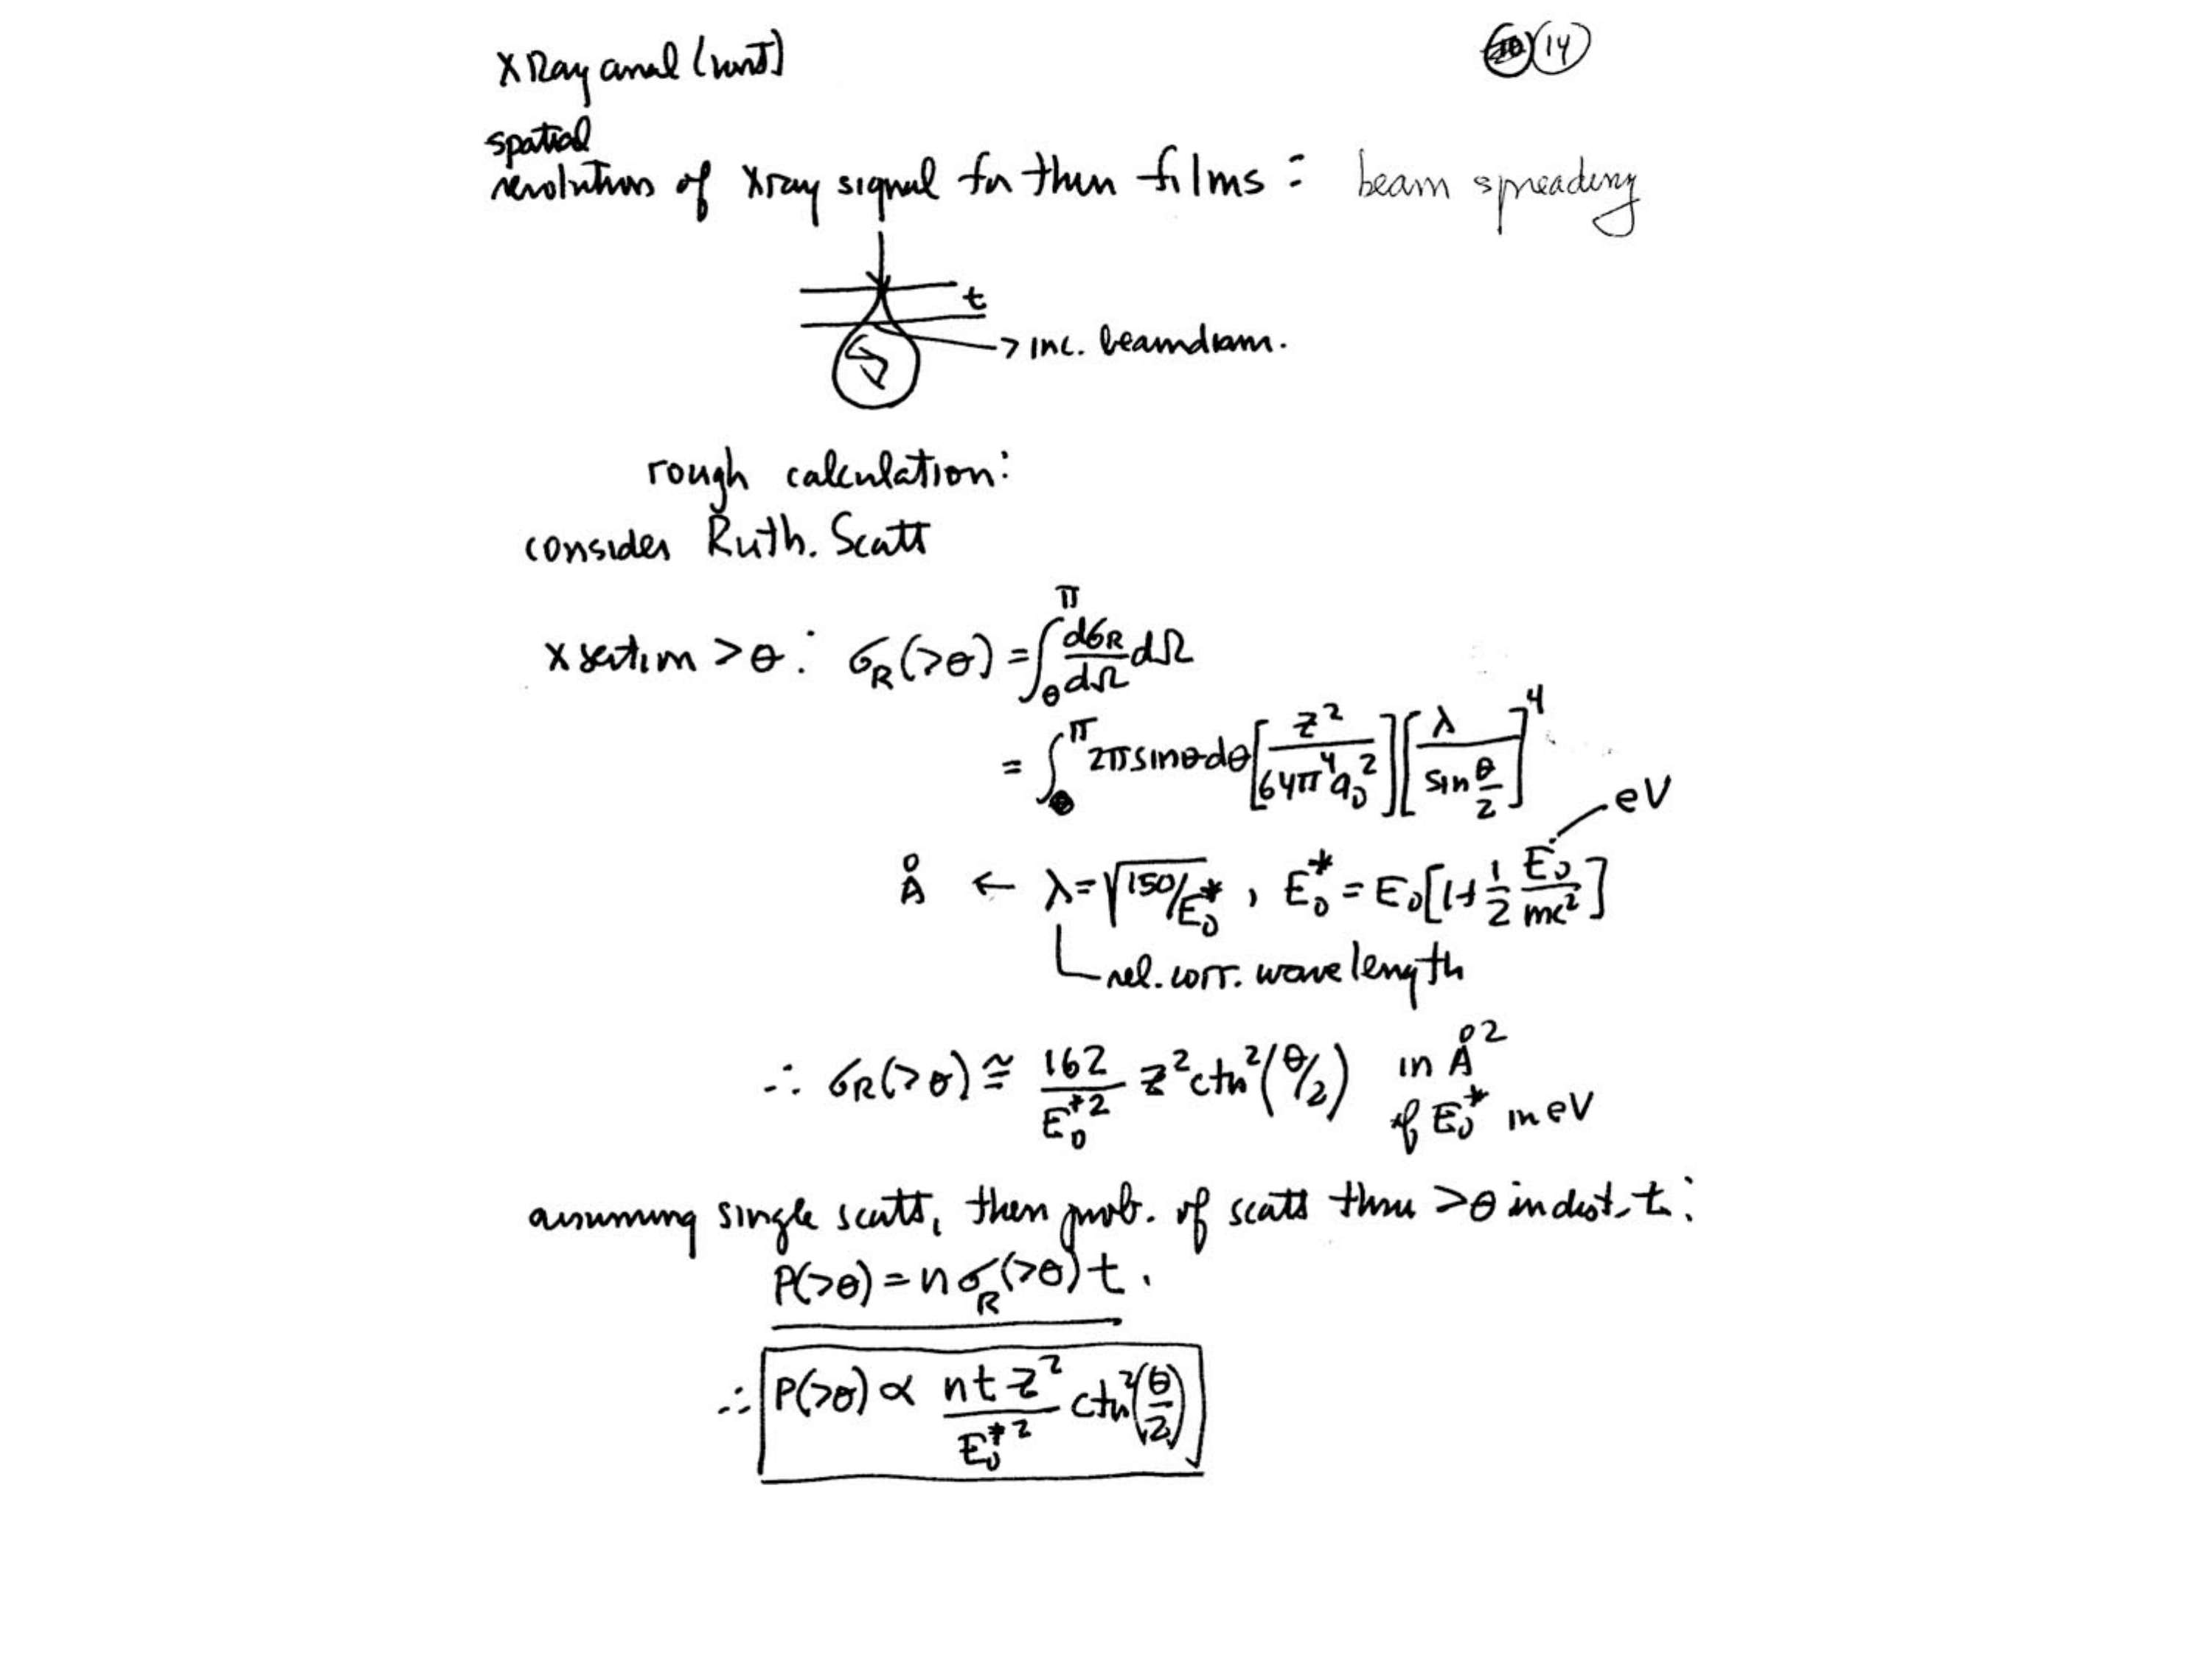 X Ray anal (cont) 14
spatial
resolution of xray signal for thin films : beam spreading
t
> inc. beam diam.
rough calculation:
consider Ruth. Scatt
x section > θ : σ_R(>θ) = ∫_θ^π dσ_R/dΩ dΩ
= ∫_θ^π 2π sinθ dθ [Z²/64π⁴a₀²] [λ/sin θ/2]⁴
eV
Å ← λ = √(150/E₀*) , E₀* = E₀[1 + 1/2 E₀/mc²]
rel. corr. wavelength
∴ σ_R(>θ) ≅ 162/E₀*² Z² ctn²(θ/2) in Å²
if E₀* in eV
assuming single scatt, then prob. of scatt thru >θ in dist. t :
P(>θ) = n σ_R(>θ) t .
∴ P(>θ) ∝ n t Z²/E₀*² ctn²(θ/2)